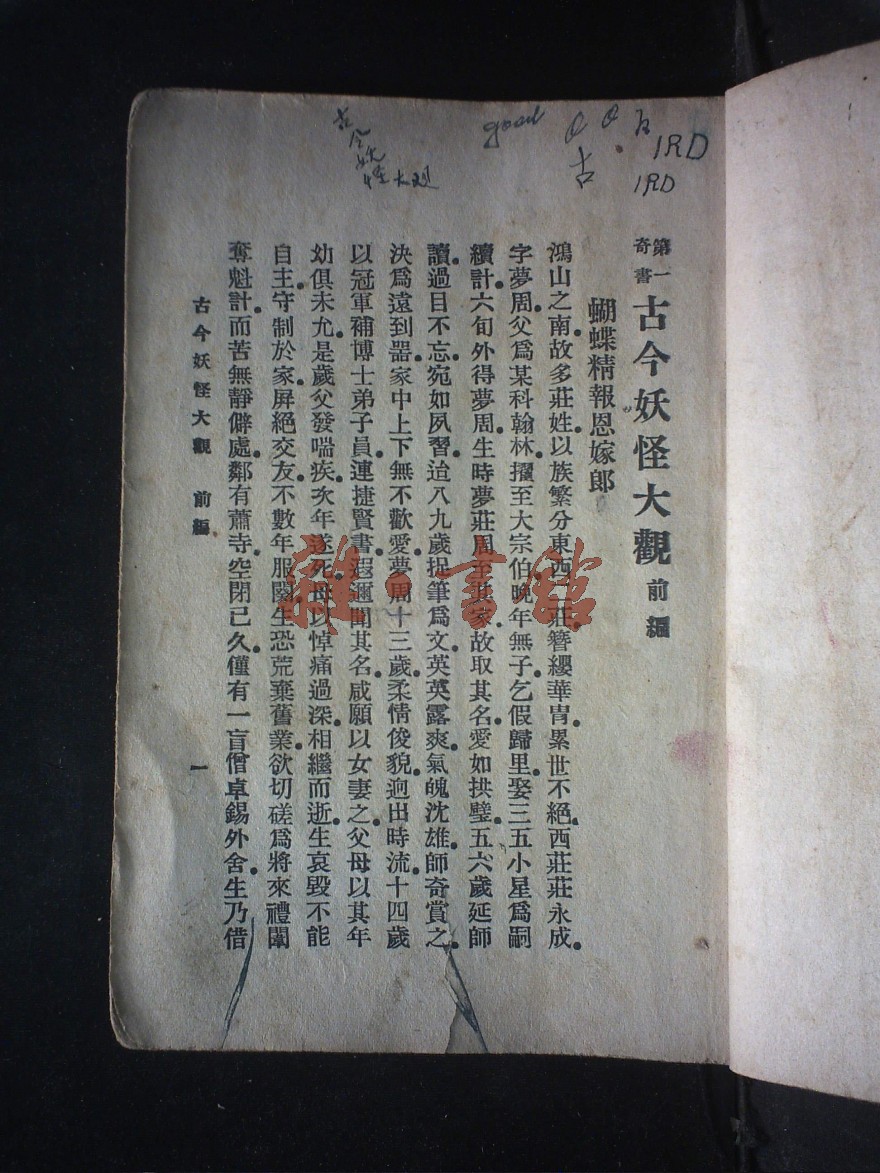 古今妖怪大观
good
古
IRD
IRD
第一奇書 古今妖怪大觀 前編
蝴蝶精報恩嫁郎
鴻山之南。故多莊姓。以族繁分東西二莊。簪纓華胄。累世不絕。西莊莊永成。
字夢周。父爲某科翰林。擢至大宗伯。晚年無子。乞假歸里。娶三五小星。爲嗣
續計。六旬外得夢周。生時夢莊周至其家。故取其名。愛如拱璧。五六歲延師
讀。過目不忘。宛如夙習。迨八九歲捉筆爲文。英英露爽。氣魄沈雄。師奇賞之。
決爲遠到器。家中上下無不歡愛。夢周十三歲。柔情俊貌。逈出時流。十四歲
以冠軍補博士弟子員。連捷賢書。遐邇聞其名。咸願以女妻之。父母以其年
幼俱未允。是歲父發喘疾。次年遂死。母以悼痛過深。相繼而逝。生哀毀不能
自主。守制於家。屏絕交友。不數年服闋。生恐荒棄舊業。欲切磋爲將來禮闈
奪魁計。而苦無靜僻處。鄰有蕭寺。空閉已久。僅有一盲僧卓錫外舍。生乃借
古今妖怪大觀 前編
一
雜·書館